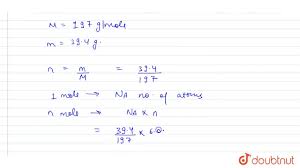 M = 197 g/mole
m = 39.4 g.
n = m/M = 39.4/197
1 mole → NA no of atoms
n mole → NA x n
= 39.4/197 x 6.0
doubtnut